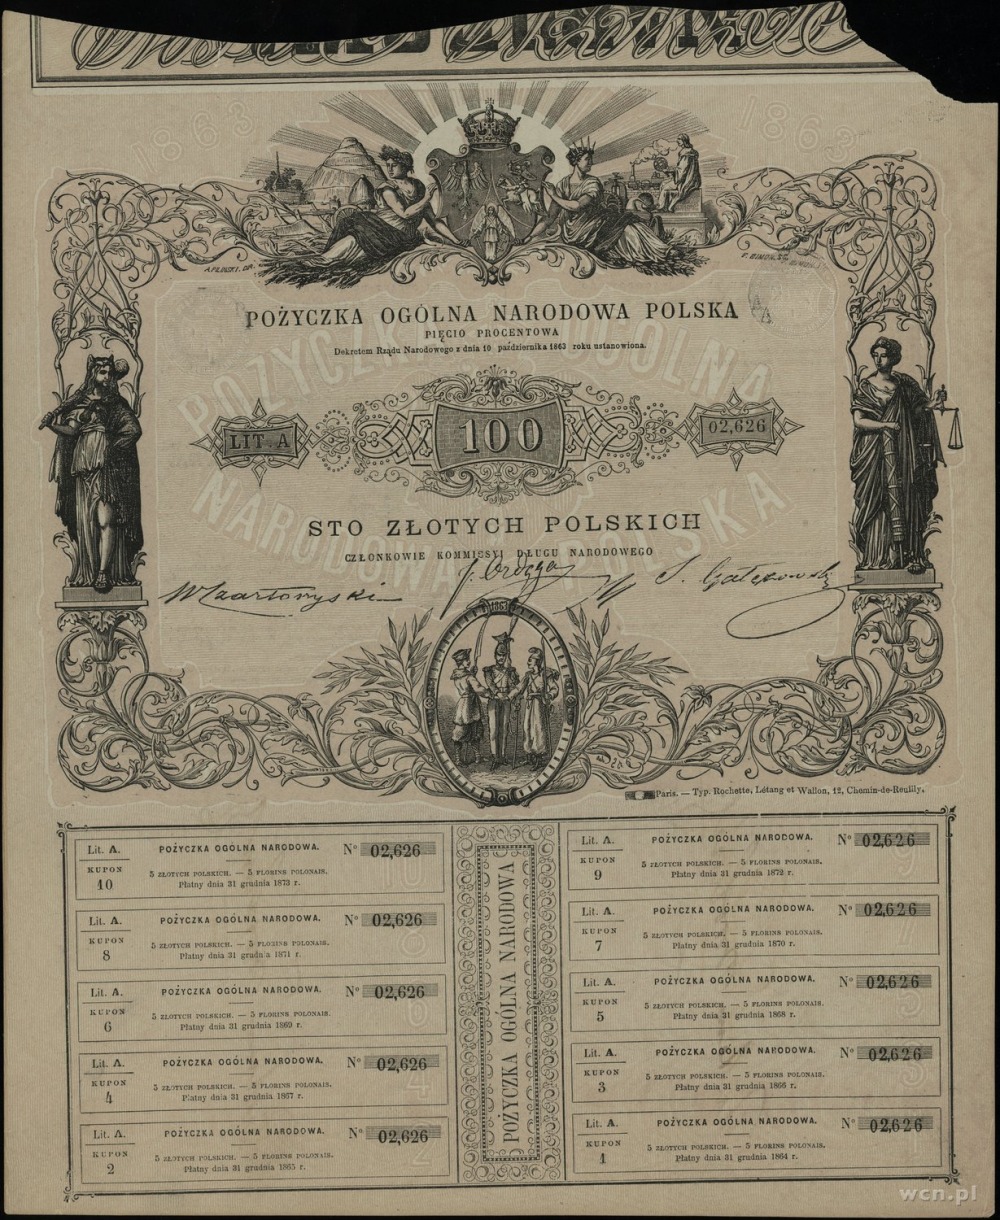 1863
1863
A. PŁOSKI. DR.
POŻYCZKA OGÓLNA NARODOWA POLSKA
PIĘCIO PROCENTOWA
Dekretem Rządu Narodowego z dnia 10 października 1863 roku ustanowiona.
POŻYCZKA OGÓLNA
NARODOWA POLSKA
LIT. A
100
02,626
STO ZŁOTYCH POLSKICH
CZŁONKOWIE KOMMISSYJ DŁUGU NARODOWEGO
W Czartoryski
J. Ordęga
S. Gałęzowski
1863
Paris. — Typ. Rochette, Létang et Wallon, 12, Chemin-de-Reuilly.
Lit. A. POŻYCZKA OGÓLNA NARODOWA. Nº 02,626
KUPON
10
5 ZŁOTYCH POLSKICH. — 5 FLORINS POLONAIS.
Płatny dnia 31 grudnia 1873 r.
Lit. A. POŻYCZKA OGÓLNA NARODOWA. Nº 02,626
KUPON
9
5 ZŁOTYCH POLSKICH. — 5 FLORINS POLONAIS.
Płatny dnia 31 grudnia 1872 r.
Lit. A. POŻYCZKA OGÓLNA NARODOWA. Nº 02,626
KUPON
8
5 ZŁOTYCH POLSKICH. — 5 FLORINS POLONAIS.
Płatny dnia 31 grudnia 1871 r.
Lit. A. POŻYCZKA OGÓLNA NARODOWA. Nº 02,626
KUPON
7
5 ZŁOTYCH POLSKICH. — 5 FLORINS POLONAIS.
Płatny dnia 31 grudnia 1870 r.
Lit. A. POŻYCZKA OGÓLNA NARODOWA. Nº 02,626
KUPON
6
5 ZŁOTYCH POLSKICH. — 5 FLORINS POLONAIS.
Płatny dnia 31 grudnia 1869 r.
Lit. A. POŻYCZKA OGÓLNA NARODOWA. Nº 02,626
KUPON
5
5 ZŁOTYCH POLSKICH. — 5 FLORINS POLONAIS.
Płatny dnia 31 grudnia 1868 r.
Lit. A. POŻYCZKA OGÓLNA NARODOWA. Nº 02,626
KUPON
4
5 ZŁOTYCH POLSKICH. — 5 FLORINS POLONAIS.
Płatny dnia 31 grudnia 1867 r.
Lit. A. POŻYCZKA OGÓLNA NARODOWA. Nº 02,626
KUPON
3
5 ZŁOTYCH POLSKICH. — 5 FLORINS POLONAIS.
Płatny dnia 31 grudnia 1866 r.
Lit. A. POŻYCZKA OGÓLNA NARODOWA. Nº 02,626
KUPON
2
5 ZŁOTYCH POLSKICH. — 5 FLORINS POLONAIS.
Płatny dnia 31 grudnia 1865 r.
Lit. A. POŻYCZKA OGÓLNA NARODOWA. Nº 02,626
KUPON
1
5 ZŁOTYCH POLSKICH. — 5 FLORINS POLONAIS.
Płatny dnia 31 grudnia 1864 r.
POŻYCZKA OGÓLNA NARODOWA
wcn.pl